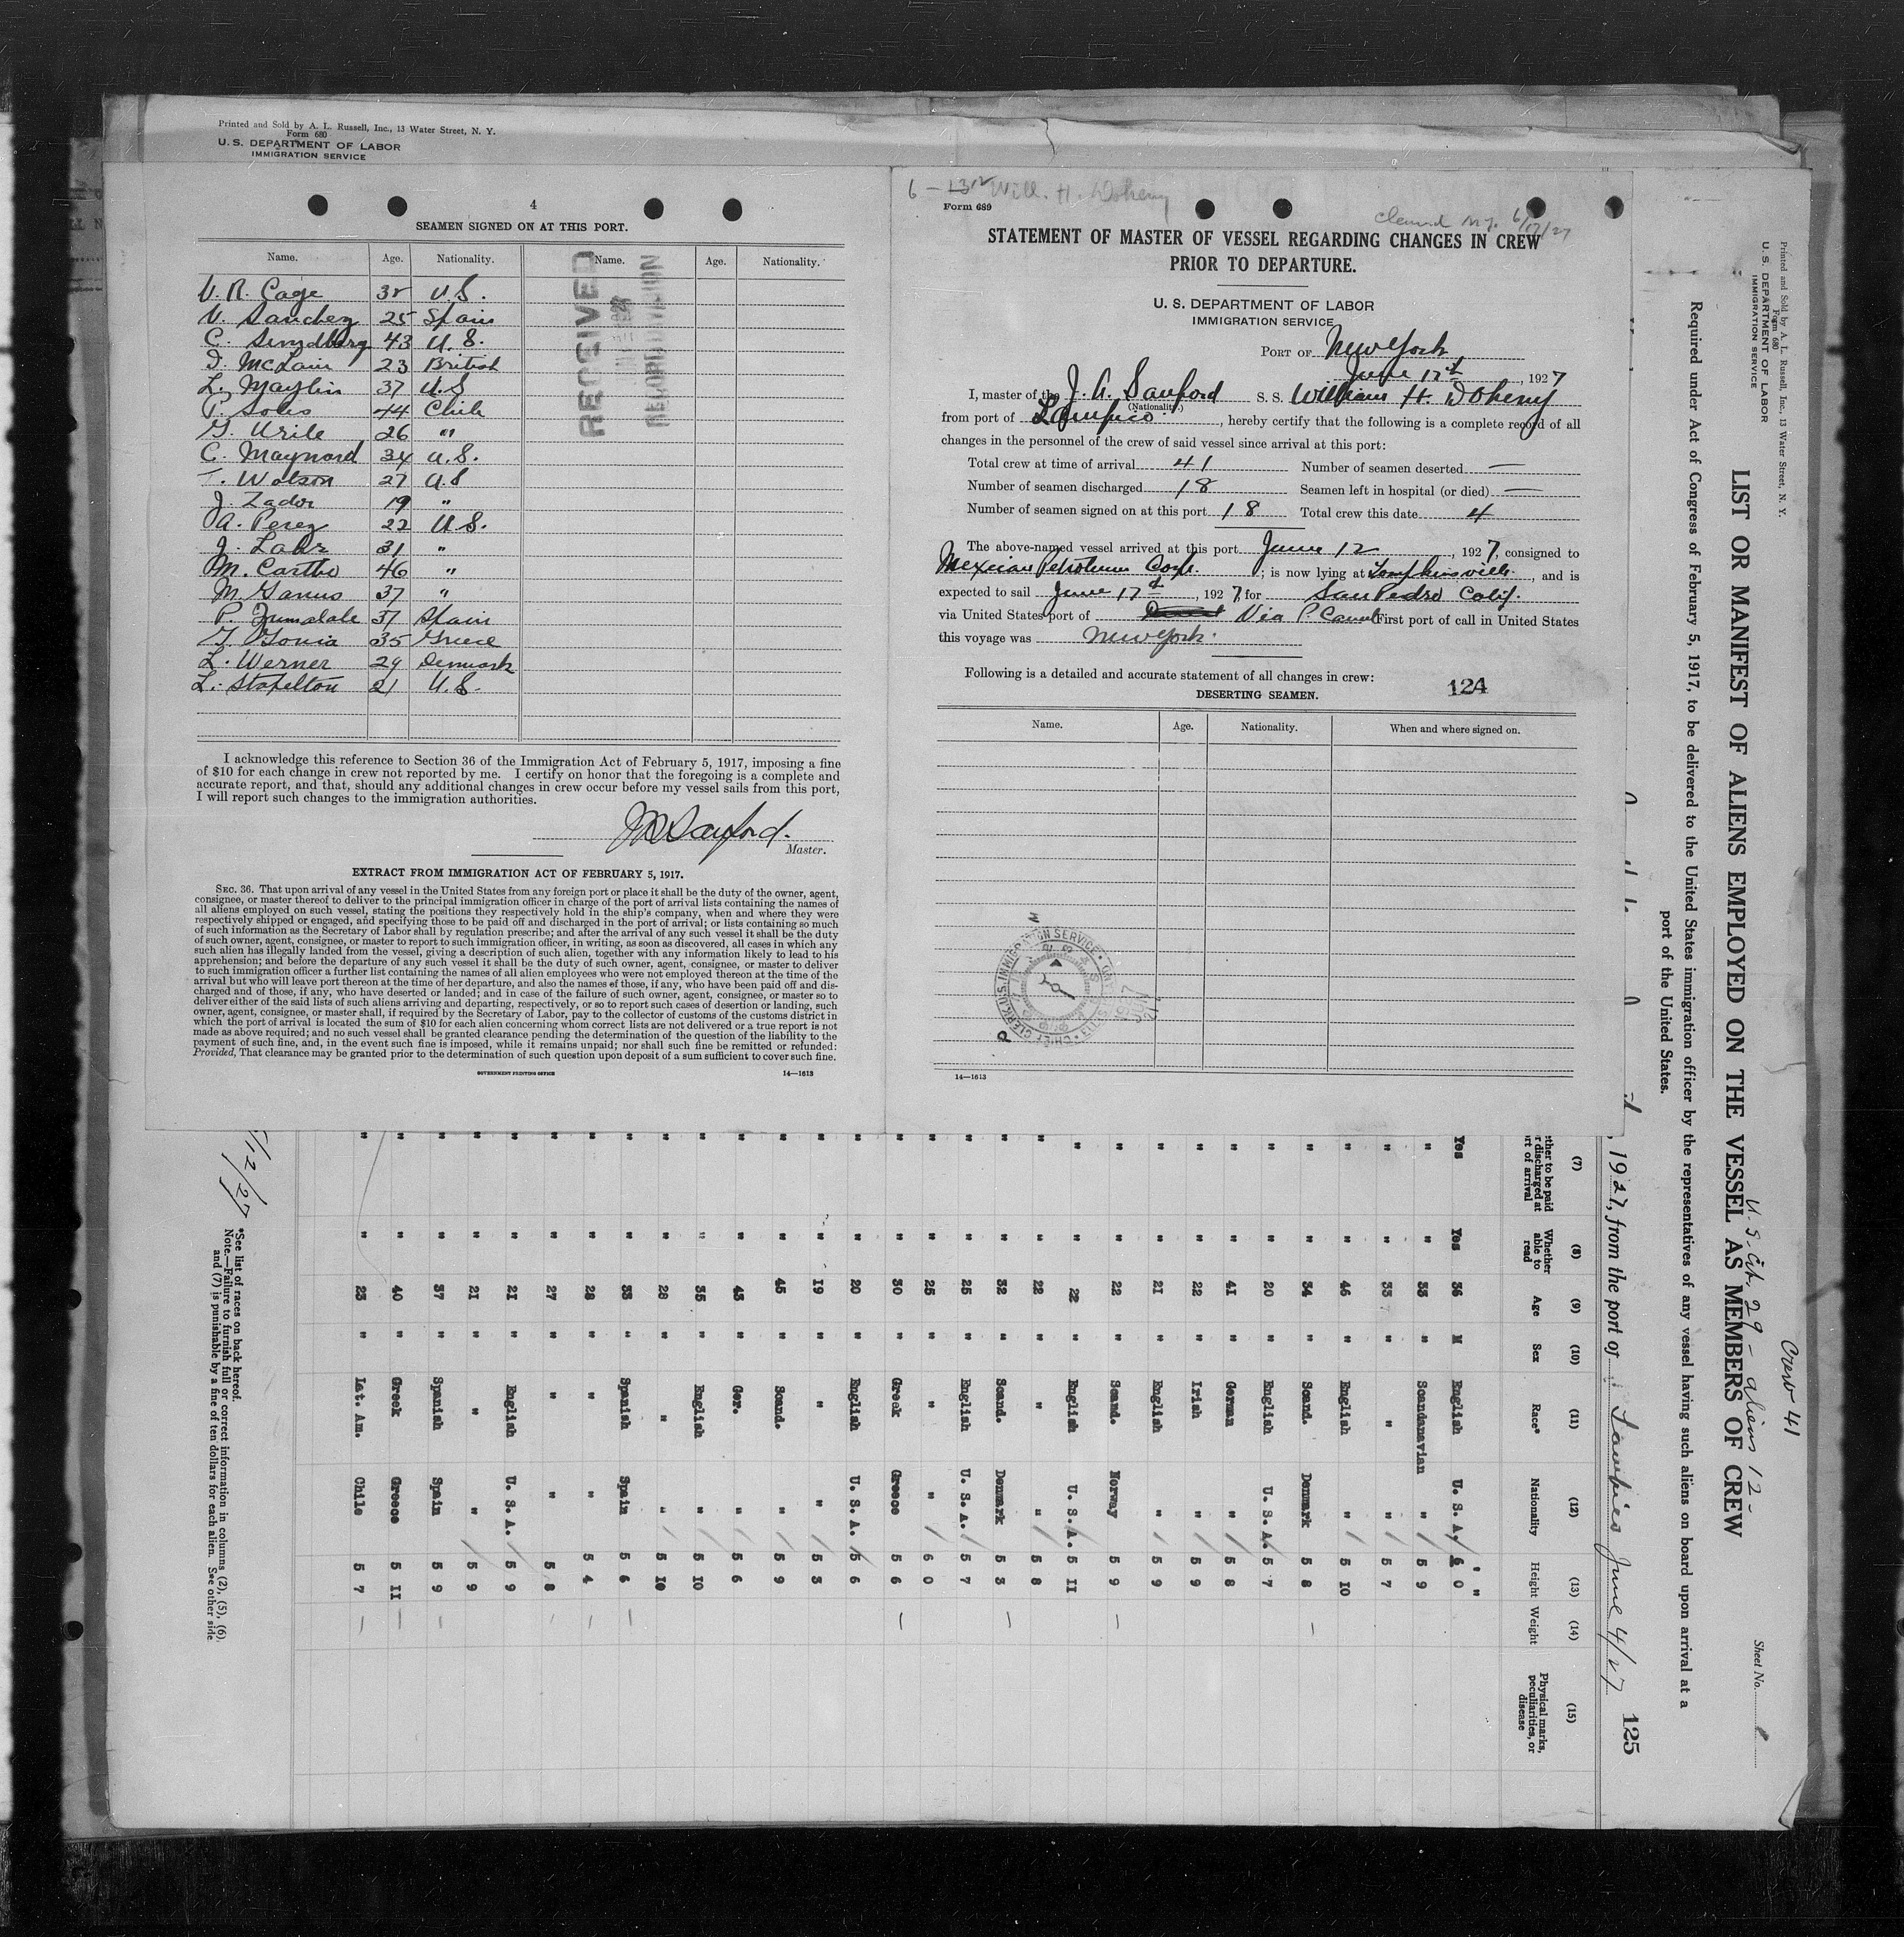 Printed and Sold by A. L. Russell, Inc., 13 Water Street, N. Y.
Form 680
U. S. DEPARTMENT OF LABOR
IMMIGRATION SERVICE
4
SEAMEN SIGNED ON AT THIS PORT.
Name. Age. Nationality. Name. Age. Nationality.
RECEIVED
RECORD DIVISION
V. R. Cage U.S.
V. Sanchez 25 Spain
C. 43 U.S.
D. McLain 23 British
L. Maylin 37 U.S
P. Solis 44 Chile
G. Urile 26 "
C. Maynard 34 U.S.
T. Watson 27 US
J. Zador 19 "
A. Perez 22 U.S.
J. Lahr 31 "
M. Cartho 46 "
M. Ganus 37 "
P. 37 Spain
G. Gonia 35 Greece
L. Werner 29 Denmark
L. Stapelton 21 U.S.
I acknowledge this reference to Section 36 of the Immigration Act of February 5, 1917, imposing a fine
of $10 for each change in crew not reported by me. I certify on honor that the foregoing is a complete and
accurate report, and that, should any additional changes in crew occur before my vessel sails from this port,
I will report such changes to the immigration authorities.
J A Sanford.
Master.
EXTRACT FROM IMMIGRATION ACT OF FEBRUARY 5, 1917.
SEC. 36. That upon arrival of any vessel in the United States from any foreign port or place it shall be the duty of the owner, agent,
consignee, or master thereof to deliver to the principal immigration officer in charge of the port of arrival lists containing the names of
all aliens employed on such vessel, stating the positions they respectively hold in the ship's company, when and where they were
respectively shipped or engaged, and specifying those to be paid off and discharged in the port of arrival; or lists containing so much
of such information as the Secretary of Labor shall by regulation prescribe; and after the arrival of any such vessel it shall be the duty
of such owner, agent, consignee, or master to report to such immigration officer, in writing, as soon as discovered, all cases in which any
such alien has illegally landed from the vessel, giving a description of such alien, together with any information likely to lead to his
apprehension; and before the departure of any such vessel it shall be the duty of such owner, agent, consignee, or master to deliver
to such immigration officer a further list containing the names of all alien employees who were not employed thereon at the time of the
arrival but who will leave port thereon at the time of her departure, and also the names of those, if any, who have been paid off and dis-
charged and of those, if any, who have deserted or landed; and in case of the failure of such owner, agent, consignee, or master so to
deliver either of the said lists of such aliens arriving and departing, respectively, or so to report such cases of desertion or landing, such
owner, agent, consignee, or master shall, if required by the Secretary of Labor, pay to the collector of customs of the customs district in
which the port of arrival is located the sum of $10 for each alien concerning whom correct lists are not delivered or a true report is not
made as above required; and no such vessel shall be granted clearance pending the determination of the question of the liability to the
payment of such fine, and, in the event such fine is imposed, while it remains unpaid; nor shall such fine be remitted or refunded:
Provided, That clearance may be granted prior to the determination of such question upon deposit of a sum sufficient to cover such fine.
GOVERNMENT PRINTING OFFICE 14—1613
Will. H. Doheny
Form 689
Cleared N.Y. 6/17/27
STATEMENT OF MASTER OF VESSEL REGARDING CHANGES IN CREW
PRIOR TO DEPARTURE.
U. S. DEPARTMENT OF LABOR
IMMIGRATION SERVICE
PORT OF New York
June 17th, 1927
I, master of the J. A. Sanford S. S. William H. Doheny
(Nationality.)
from port of Tampico, hereby certify that the following is a complete record of all
changes in the personnel of the crew of said vessel since arrival at this port:
Total crew at time of arrival 41 Number of seamen deserted —
Number of seamen discharged 18 Seamen left in hospital (or died) —
Number of seamen signed on at this port 18 Total crew this date 4
The above-named vessel arrived at this port June 12, 1927, consigned to
Mexican Petroleum Corp.; is now lying at Tompkinsville, and is
expected to sail June 17th, 1927, for San Pedro Calif.
via United States port of Via P. Canal First port of call in United States
this voyage was New York.
Following is a detailed and accurate statement of all changes in crew:
124
DESERTING SEAMEN.
Name. Age. Nationality. When and where signed on.
U.S. IMMIGRATION SERVICE
CHIEF CLERK
14—1613
Printed and Sold by A. L. Russell, Inc., 13 Water Street, N. Y.
Form 680
U. S. DEPARTMENT OF LABOR
IMMIGRATION SERVICE
Crew 41
U.S. Cit. 29 - aliens 12 -
Sheet No.
LIST OR MANIFEST OF ALIENS EMPLOYED ON THE VESSEL AS MEMBERS OF CREW
Required under Act of Congress of February 5, 1917, to be delivered to the United States immigration officer by the representatives of any vessel having such aliens on board upon arrival at a
port of the United States.
125
, 1927, from the port of June 4/27
(7) (8) (9) (10) (11) (12) (13) (14) (15)
ther to be paid
r discharged at
rt of arrival
Whether able to read
Age
Sex
Race*
Nationality
Height
Weight
Physical marks, peculiarities, or disease
Yes Yes 36 M English U. S. A. 6 0
" " 33 " Scandanavian " 5 9
" " 33 " " " 5 7
" " 46 " English " 5 10
" " 34 " Scand. Denmark 5 8 —
" " 20 " English U. S. A. 5 7
" " 41 " German " 5 8
" " 22 " Irish " 5 9
" " 21 " English " 5 9
" " 22 " Scand. Norway 5 9 —
" " 22 " English U. S. A. 5 11
" " 22 " " " 5 8
" " 32 " Scand. Denmark 5 3 —
" " 25 " English U. S. A. 5 7
" " 25 " " " 6 0
" " 30 " Greek Greece 5 6 —
" " 20 " English U. S. A. 5 6
" " 19 " " " 5 3
" " 45 " Scand. " 5 9
" " 43 " Ger. " 5 6
" " 35 " English " 5 10
" " 28 " " " 5 10
" " 33 " Spanish Spain 5 6 —
" " 28 " " " 5 4 —
" " 27 " " " 5 8 —
" " 21 " English U. S. A. 5 9
" " 21 " " " 5 9
" " 37 " Spanish Spain 5 9 —
" " 40 " Greek Greece 5 11 —
" " 23 " Lat. Am. Chile 5 7 —
*See list of races on back hereof.
Note.—Failure to furnish full or correct information in columns (2), (5), (6)
and (7) is punishable by a fine of ten dollars for each alien. See other side
/12/27